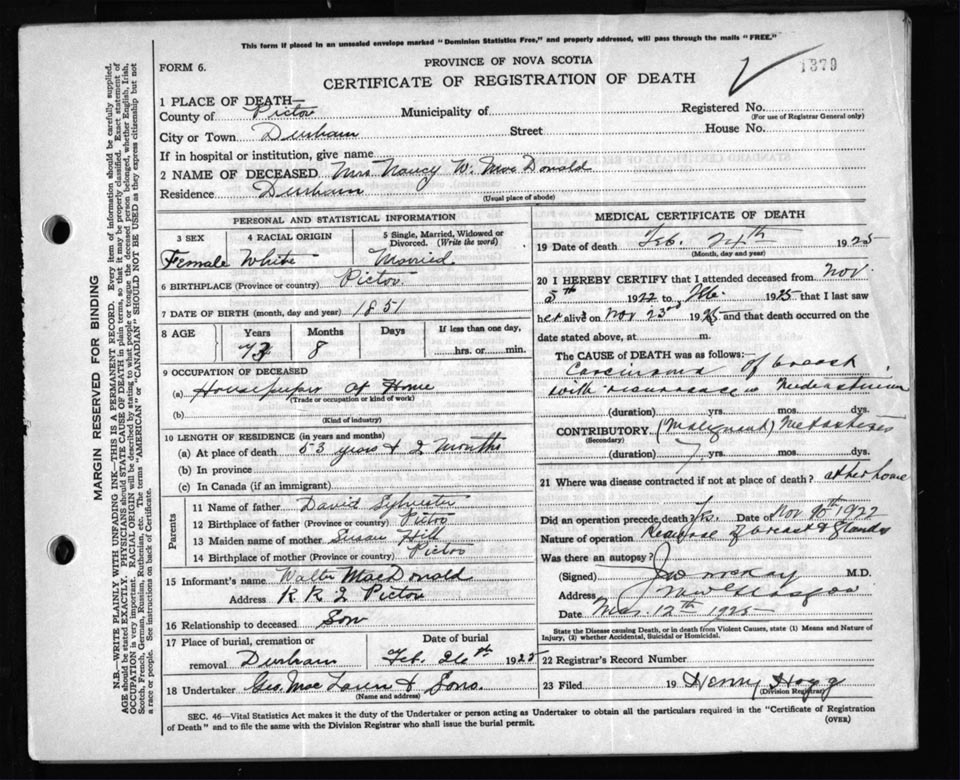 This form if placed in an unsealed envelope marked "Dominion Statistics Free," and properly addressed, will pass through the mails "FREE."
FORM 6.
PROVINCE OF NOVA SCOTIA
1370
CERTIFICATE OF REGISTRATION OF DEATH
1 PLACE OF DEATH—
County of Pictou Municipality of Registered No.
(For use of Registrar General only)
City or Town Durham Street House No.
If in hospital or institution, give name
2 NAME OF DECEASED Mrs Nancy W. MacDonald
Residence Durham
(Usual place of abode)
PERSONAL AND STATISTICAL INFORMATION
3 SEX 4 RACIAL ORIGIN 5 Single, Married, Widowed or Divorced. (Write the word)
Female White Married
6 BIRTHPLACE (Province or country) Pictou
7 DATE OF BIRTH (month, day and year) 1851
8 AGE Years Months Days If less than one day,
73 8 hrs. or min.
9 OCCUPATION OF DECEASED
(a) Housekeeper at Home
(Trade or occupation or kind of work)
(b)
(Kind of industry)
10 LENGTH OF RESIDENCE (in years and months)
(a) At place of death 53 years & 2 months
(b) In province
(c) In Canada (if an immigrant)
Parents
11 Name of father David Sylvester
12 Birthplace of father (Province or country) Pictou
13 Maiden name of mother Susan Hill
14 Birthplace of mother (Province or country) Pictou
15 Informant's name Walter MacDonald
Address R R 2 Pictou
16 Relationship to deceased Son
17 Place of burial, cremation or removal Durham Date of burial Feb. 26th 1925
18 Undertaker Geo. MacLaren & Sons.
(Name and address)
MEDICAL CERTIFICATE OF DEATH
19 Date of death Feb. 24th 1925
(Month, day and year)
20 I HEREBY CERTIFY that I attended deceased from Nov.
5th 1922 to Feb. 1925 that I last saw
her alive on Nov 23rd 1925 and that death occurred on the
date stated above, at m.
The CAUSE OF DEATH was as follows:—
Carcinoma of breast
with recurrence in Mediastinum
(duration) yrs. mos. dys.
CONTRIBUTORY (Malignant) Metastases
(Secondary)
(duration) yrs. mos. dys.
21 Where was disease contracted if not at place of death? at her home
Did an operation precede death? Yes. Date of Nov 1922
Nature of operation of breast & glands
Was there an autopsy?
(Signed) McKay M.D.
Address New Glasgow
Date Mar. 12th 1925
State the Disease causing Death, or in death from Violent Causes, state (1) Means and Nature of
Injury, (2) whether Accidental, Suicidal or Homicidal.
22 Registrar's Record Number
23 Filed 19 Henry Hogg
(Division Registrar)
SEC. 46—Vital Statistics Act makes it the duty of the Undertaker or person acting as Undertaker to obtain all the particulars required in the "Certificate of Registration
of Death" and to file the same with the Division Registrar who shall issue the burial permit.
(OVER)
MARGIN RESERVED FOR BINDING
N.B.—WRITE PLAINLY WITH UNFADING INK—THIS IS A PERMANENT RECORD. Every item of information should be carefully supplied.
AGE should be stated EXACTLY. PHYSICIANS should STATE CAUSE OF DEATH in plain terms, so that it may be properly classified. Exact statement of
OCCUPATION is very important. RACIAL ORIGIN will be described by stating to what people or tongue the deceased person belonged, whether English, Irish,
Scotch, French, German, Russian, Ruthenian, etc. The terms "AMERICAN" or "CANADIAN" SHOULD NOT BE USED as they express citizenship but not
a race or people. See instructions on back of Certificate.